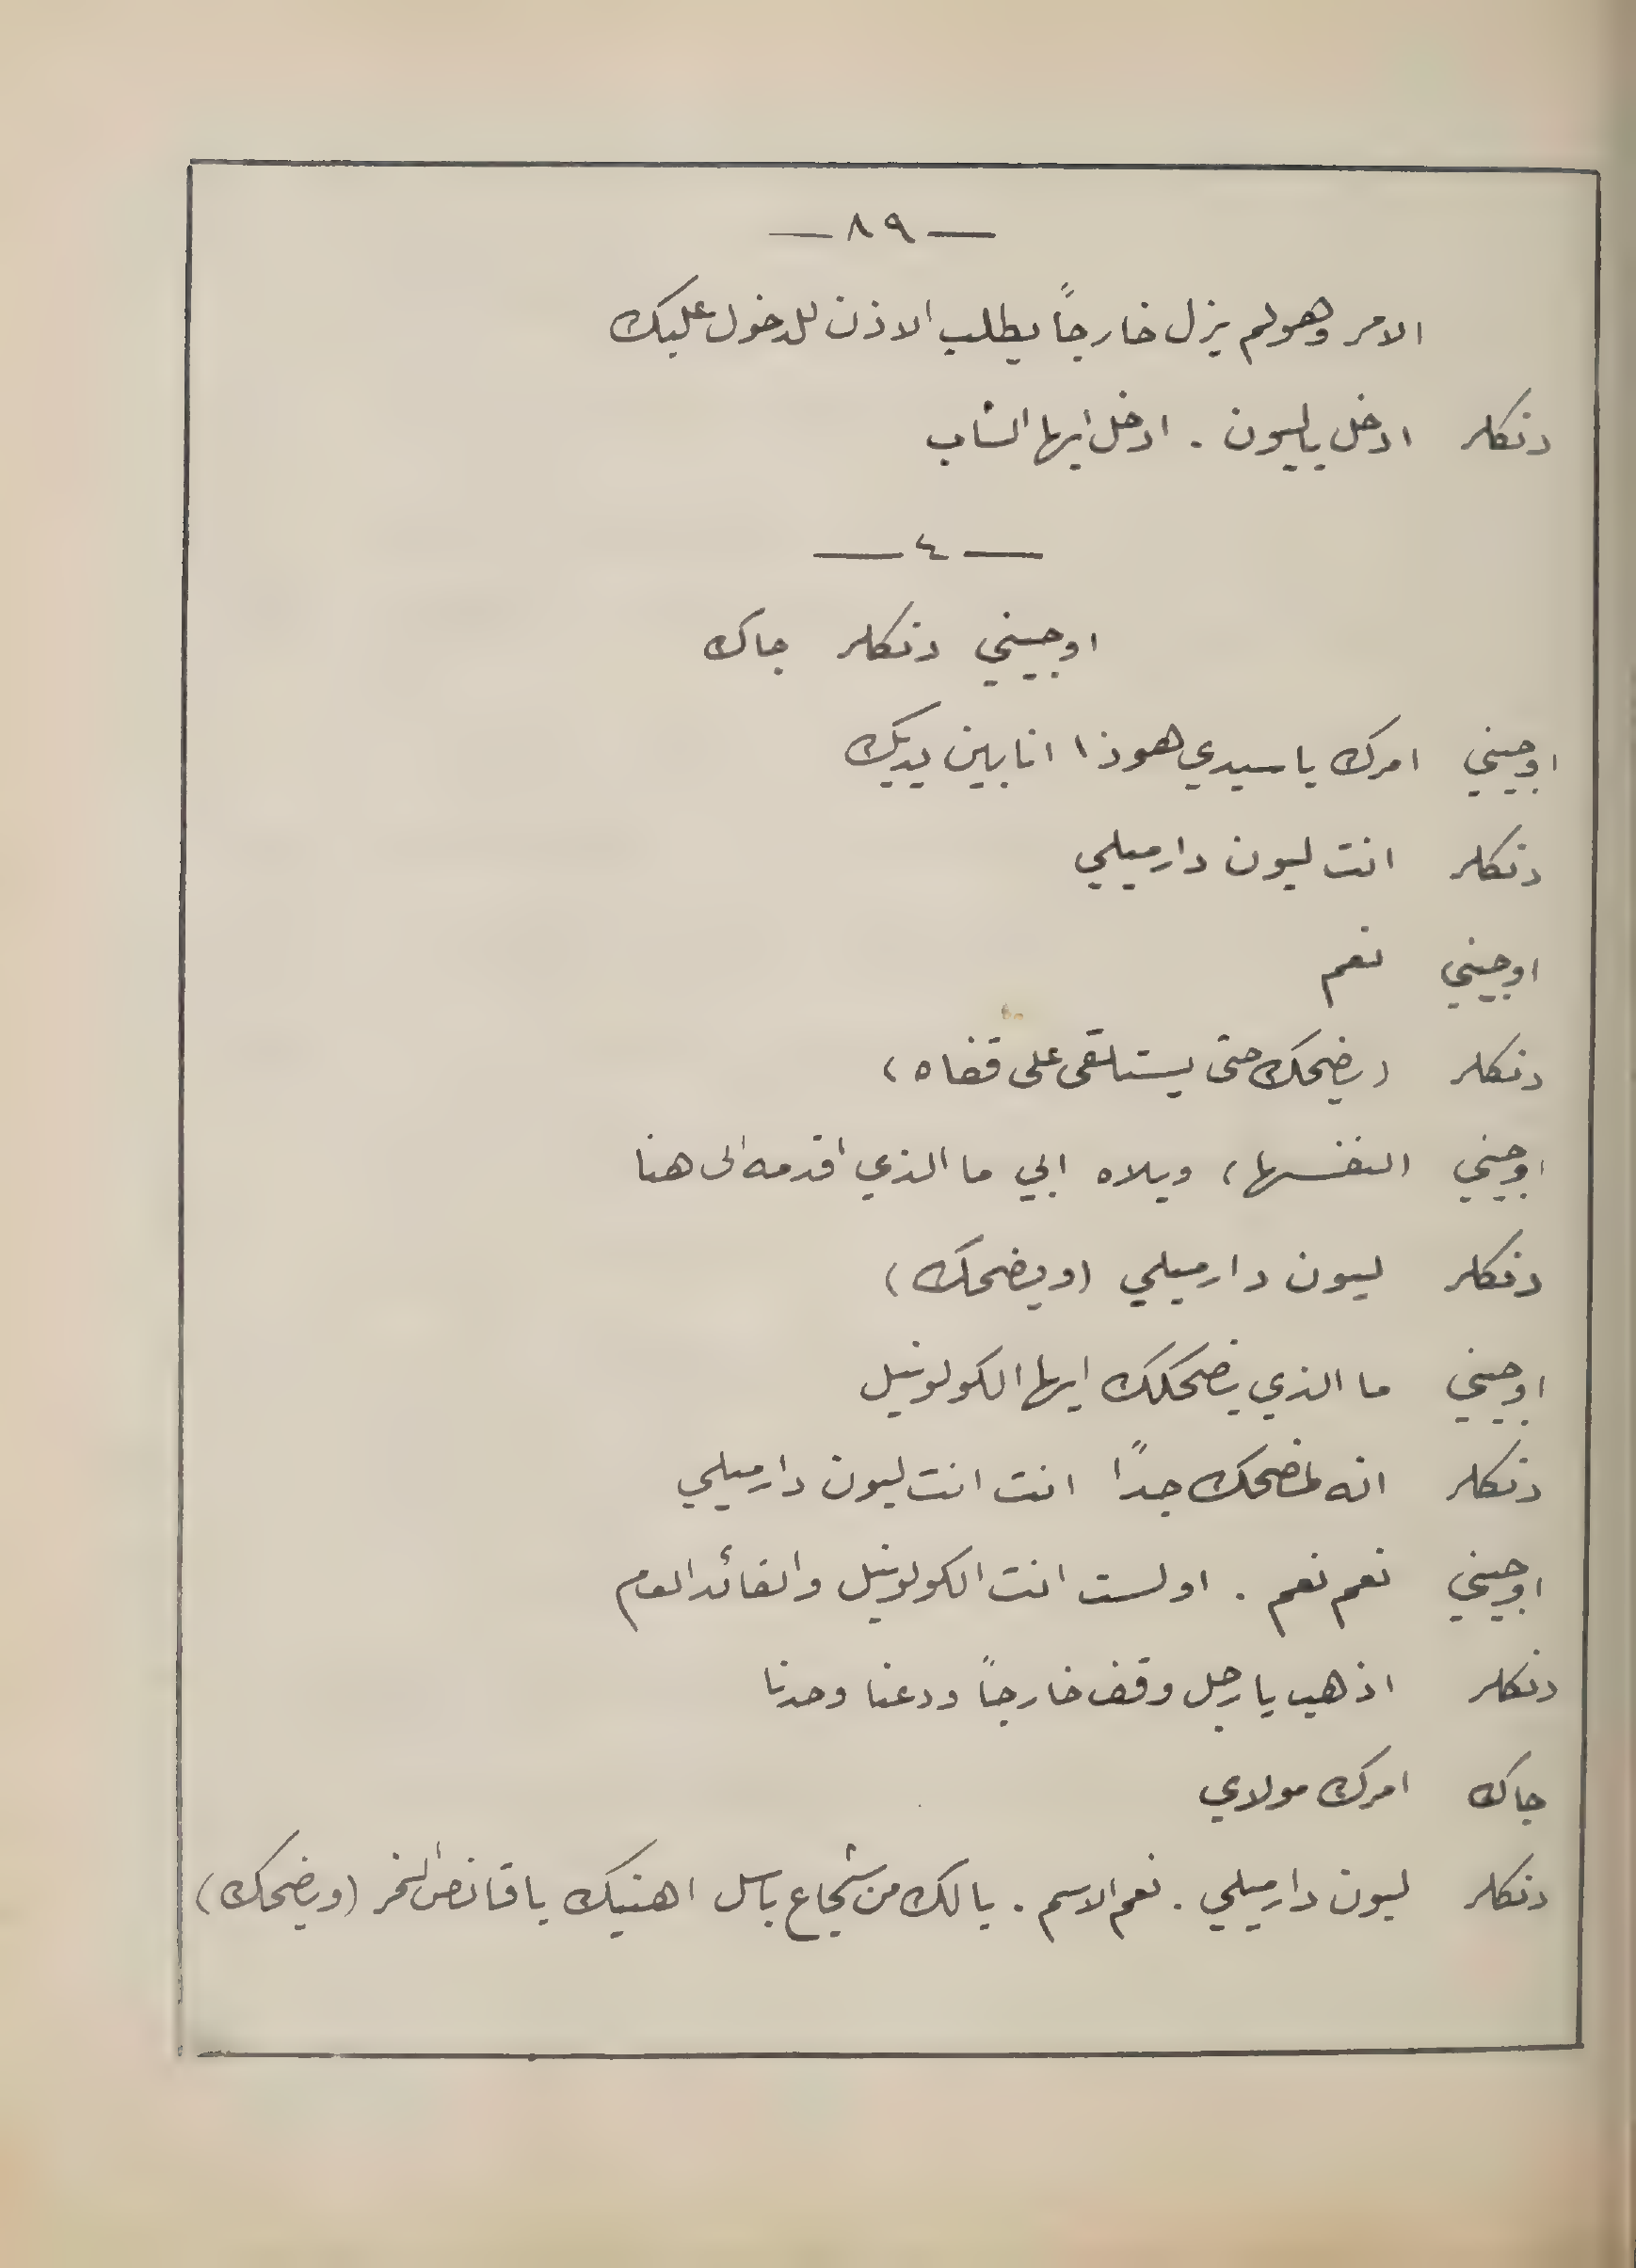 — ٨٩ —
الامر وهو لم يزل خارجاً يطلب الاذن للدخول عليك
دنكلر ادخل ياليون . ادخل ايها الشاب
— ٤ —
اوجيني دنكلر جاك
اوجيني امرك يا سيدي هوذا انا بين يديك
دنكلر انت ليون دارميلي
اوجيني نعم
دنكلر (يضحك حتى يستلقى على قفاه)
اوجيني (لنفسها) ويلاه ابي ما الذي اقدمه الى هنا
دنكلر ليون دارميلي (ويضحك)
اوجيني ما الذي يضحكك ايها الكولونيل
دنكلر انه لمضحك جداً انت انت ليون دارميلي
اوجيني نعم نعم . اولست انت الكولونيل والقائد العام
دنكلر اذهب يا رجل وقف خارجاً ودعنا وحدنا
جاك امرك مولاي
دنكلر ليون دارميلي . نعم الاسم . يالك من شجاع باسل اهنيك يا قانص (ويضحك)